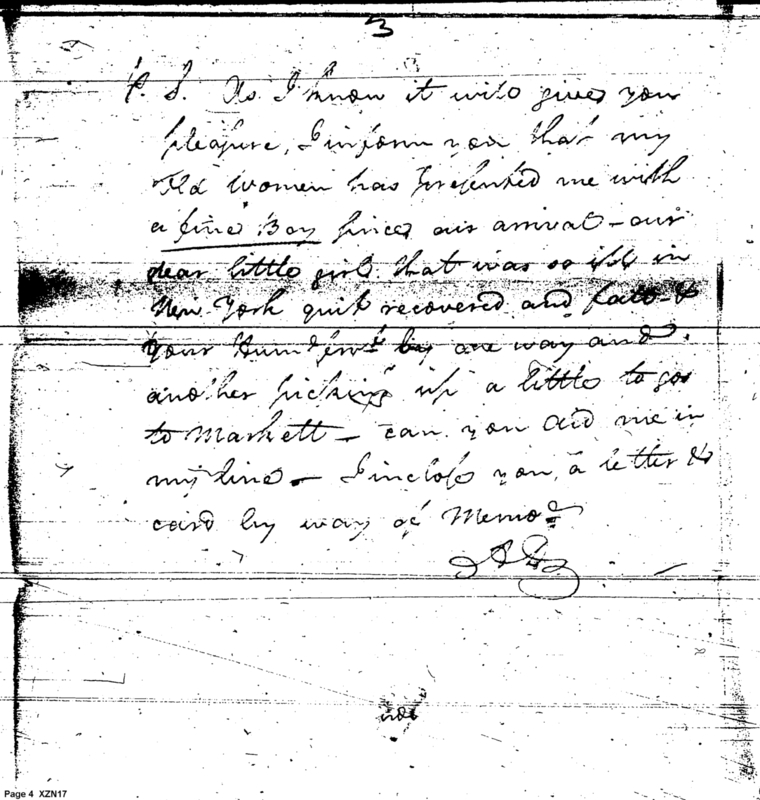 3
P. S. As I know it will give you
pleasure, I inform you that my
Old Women has presented me with
a fine Boy since our arrival - our
dear little girl that was so ill in
New York quit recovered and fatt - &
your Hum.e Serv.t by one way and
another picking up a little to go
to Markett - can you aid me in
my line - I inclose you, a letter &
card by way of Memo.
Page 4 XZN17